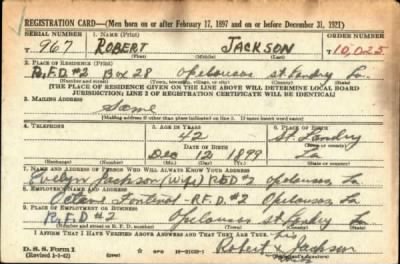 REGISTRATION CARD—(Men born on or after February 17, 1897 and on or before December 31, 1921)
SERIAL NUMBER 1. NAME (Print) ORDER NUMBER
T 967 ROBERT JACKSON T10,025
(First) (Middle) (Last)
2. PLACE OF RESIDENCE (Print)
R.F.D. #2 Box 28 Opelousas St. Landry La.
(Number and street) (Town, township, village, or city) (County) (State)
[THE PLACE OF RESIDENCE GIVEN ON THE LINE ABOVE WILL DETERMINE LOCAL BOARD
JURISDICTION; LINE 2 OF REGISTRATION CERTIFICATE WILL BE IDENTICAL]
3. MAILING ADDRESS
Same
(Mailing address if other than place indicated on line 2. If same insert word same)
4. TELEPHONE 5. AGE IN YEARS 6. PLACE OF BIRTH
42 St. Landry
DATE OF BIRTH (Town or county)
Dec 12 1899 La
(Exchange) (Number) (Mo.) (Day) (Yr.) (State or country)
7. NAME AND ADDRESS OF PERSON WHO WILL ALWAYS KNOW YOUR ADDRESS
Jackson (Wife) RFD #2 Opelousas, La
8. EMPLOYER'S NAME AND ADDRESS
Octave Fontenot - R.F.D. #2 Opelousas, La
9. PLACE OF EMPLOYMENT OR BUSINESS
R.F.D. #2 Opelousas St. Landry La
(Number and street or R. F. D. number) (Town) (County) (State)
I AFFIRM THAT I HAVE VERIFIED ABOVE ANSWERS AND THAT THEY ARE TRUE. his
D. S. S. Form 1 Robert x Jackson
(Revised 1-1-42) mark